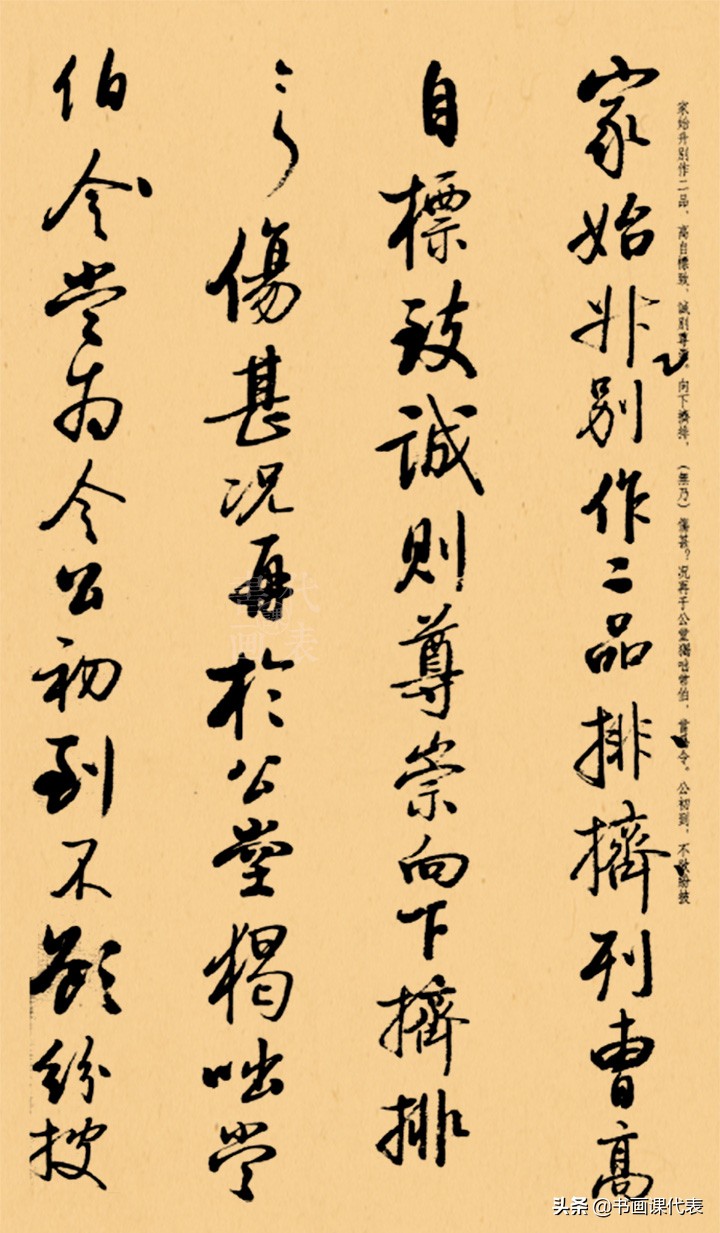 家始升别作二品,高自標致,誠别尊崇。向下擠排,(無乃)傷甚?况再于公堂獨咄常伯,當為令。公初到,不欲紛披
家始别作二品排擠列曹高
自標致誠則尊崇向下擠排
傷甚況再於公堂猲咄常
伯令當為令公初到不欲紛披
头条 @书画课代表